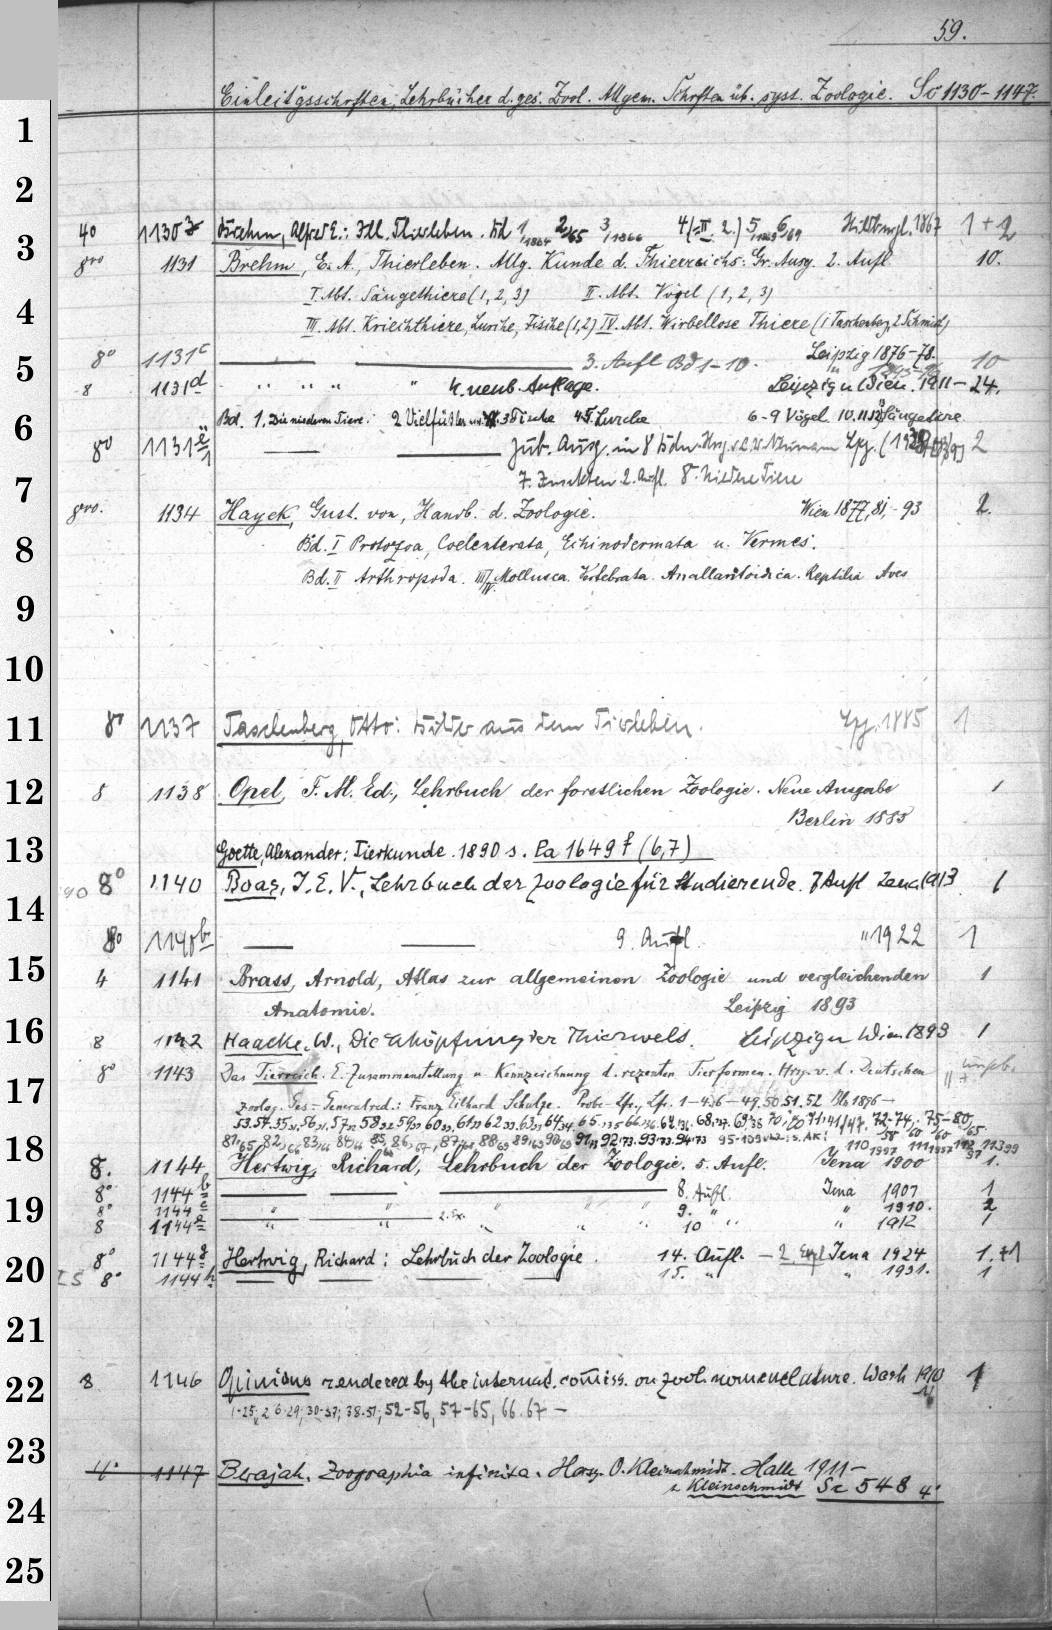 59.
Einleitgsschriften, Lehrbücher d. ges. Zool. Allgem. Schriften üb. syst. Zoologie. Sc 1130-1147.
1
2
3
4
5
6
7
8
9
10
11
12
13
14
15
16
17
18
19
20
21
22
23
24
25
4o 1130 Brehm, Alfred E.: Ill. Thierleben. Bd 1/1864 2/65 3/1866 4(=II. 2.) 5/1869 6/69 Hildburgh. 1867 1 + 2
8vo 1131 Brehm, E. A., Thierleben. Allg. Kunde d. Thierreichs: Gr. Ausg. 2. Aufl 10.
I Abt. Säugethiere (1, 2, 3) II. Abt. Vögel (1, 2, 3)
III. Abt. Kriechthiere, Lurche, Fische (1,2) IV. Abt. Wirbellose Thiere (1 Taschenberg, 2 Schmidt)
Leipzig 1876-78.
8o 1131c 3. Aufl Bd 1-10. 10
8 1131d " " " " 4. neub. Auflage. Leipzig u Wien. 1911- 24.
Bd. 1. Die niederen Tiere: 2 Vielfüßler 3 Fische 4 Lurche 6-9 Vögel 10. 11 12 Säugetiere
8o 1131e Jub. Ausg. in 8 Bdn. Hrsg. v. Neumann Lpz. 2
7. Insekten 2. Aufl. 8. Niedere Tiere
8vo. 1134 Hayek, Gust. von, Handb. d. Zoologie. Wien 1877, 81, -93 2.
Bd. I Protozoa, Coelenterata, Echinodermata u. Vermes.
Bd. II Arthropoda. III/IV Mollusca. Vertebrata. Anallantoidica. Reptilia Aves
8o 1137 Taschenberg, Otto: Bilder aus dem Tierleben. Lpz. 1885 1
8 1138 Opel, F. M. Ed., Lehrbuch der forstlichen Zoologie. Neue Ausgabe 1
Berlin 1885
Goette, Alexander: Tierkunde. 1890 s. La 1649 f (6,7)
8o 1140 Boas, J. E. V., Lehrbuch der Zoologie für Studierende. 7 Aufl Jena 1913 1
8o 1140b 9. Aufl. " 1922 1
4 1141 Brass, Arnold, Atlas zur allgemeinen Zoologie und vergleichenden 1
Anatomie. Leipzig 1893
8 1142 Haacke, W., Die Schöpfung der Thierwelt. Leipzig u Wien 1893 1
8o 1143 Das Tierreich. E. Zusammenstellung u. Kennzeichnung d. rezenten Tierformen. Hrsg. v. d. Deutschen
Zoolog. Ges. - Generalred.: Franz Eilhard Schulze. Probe-Lfr., Lf. 1-436-49. 50. 51. 52 Bln 1896-
8. 1144 Hertwig, Richard, Lehrbuch der Zoologie. 5. Aufl. Jena 1900 1.
8o 1144b 8. Aufl. Jena 1907 1
8o 1144c " 2. Ex. " 9. " " 1910. 2
8 1144e " " " " 10 " " 1912 1
8o 1144g Hertwig, Richard: Lehrbuch der Zoologie. 14. Aufl. - 2. Expl Jena 1924 1. +1
8o 1144h 15. " " 1931. 1
8 1146 Opinions rendered by the internat. commiss. on zool. nomenclature. Wash 1910 1
1-25, 26-29; 30-37; 38-51; 52-56, 57-65, 66. 67 -
4o 1147 Berajah, Zoographia infinita. Hersg. O. Kleinschmidt. Halle 1911-
s. Kleinschmidt Sc 548 4o